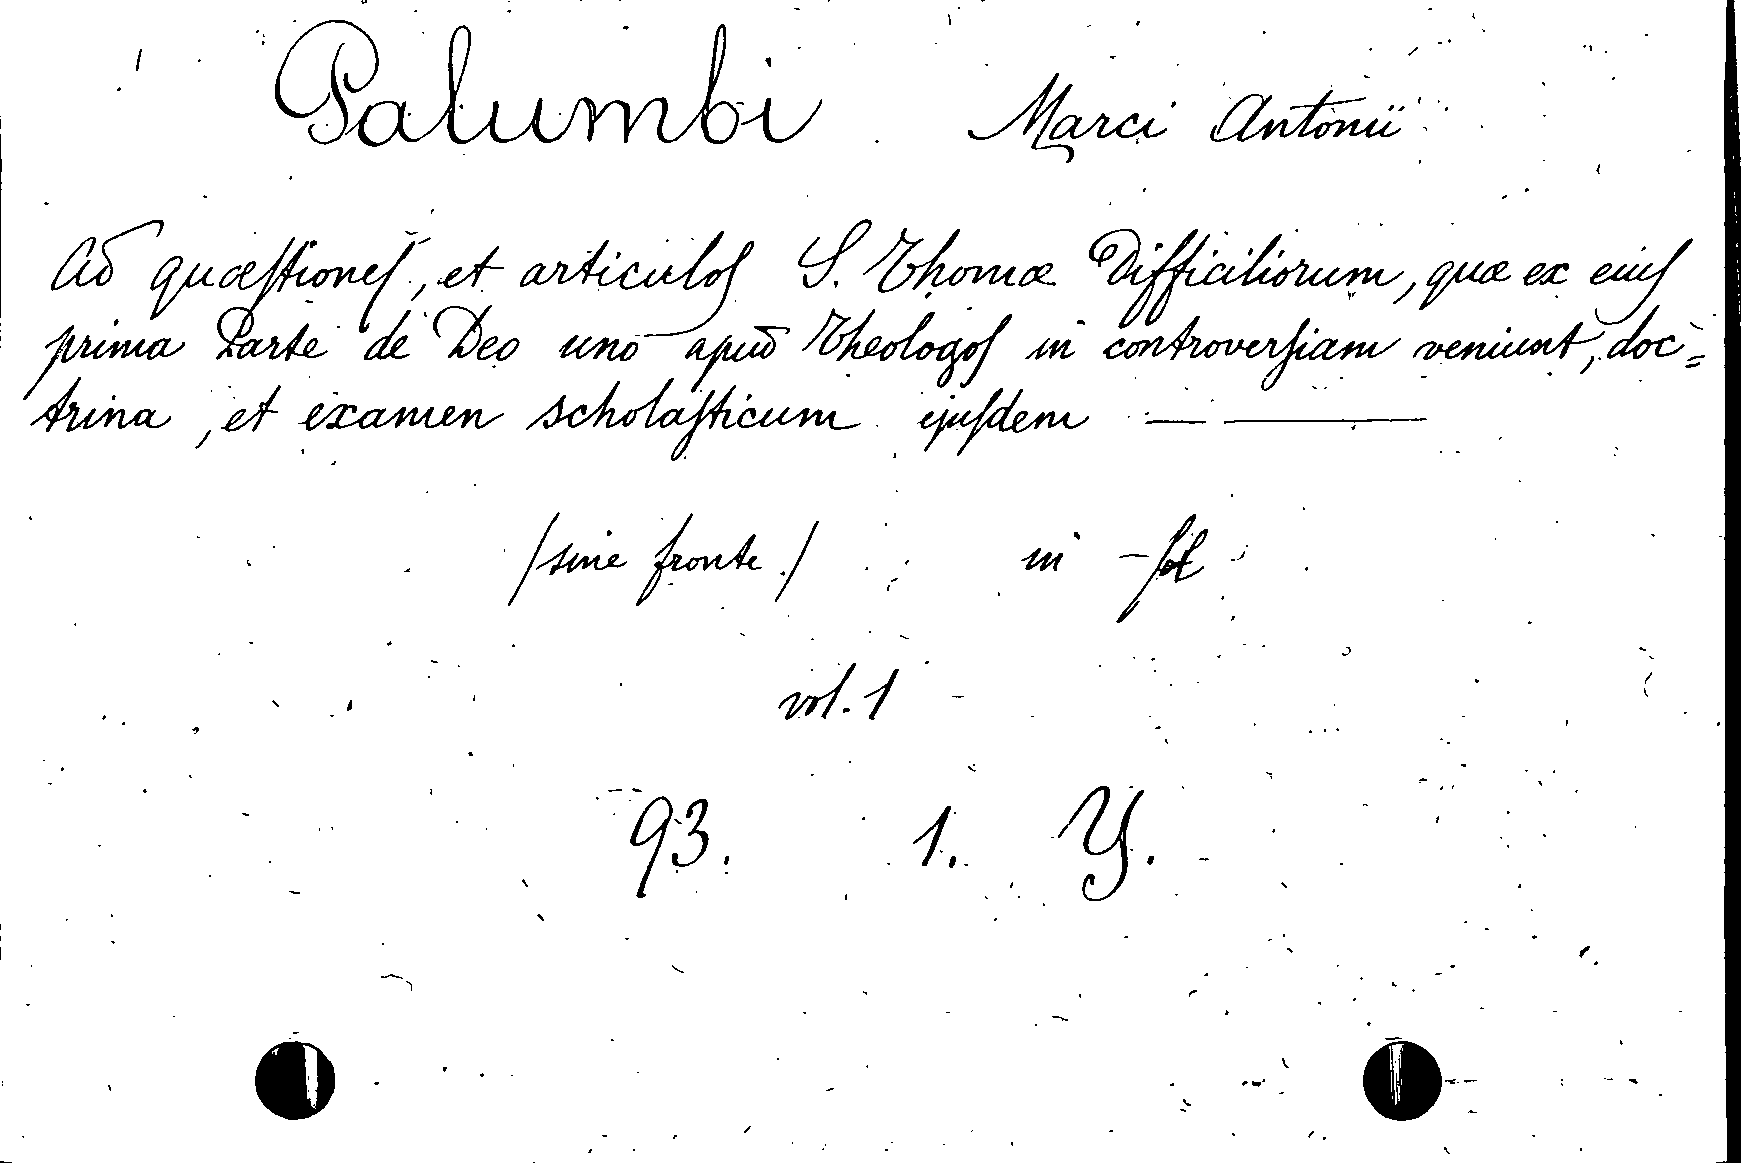 Palumbi Marci Antonii
Ad quæſtioneſ, et articuloſ S. Thomæ Difficiliorum, quæ ex eiuſ
prima Parte de Deo uno apud Theologoſ in controverſiam veniunt, doc=
trina, et examen scholaſticum ejuſdem — ———
/sine fronte/ in - fol
vol. 1
93. 1. Y.